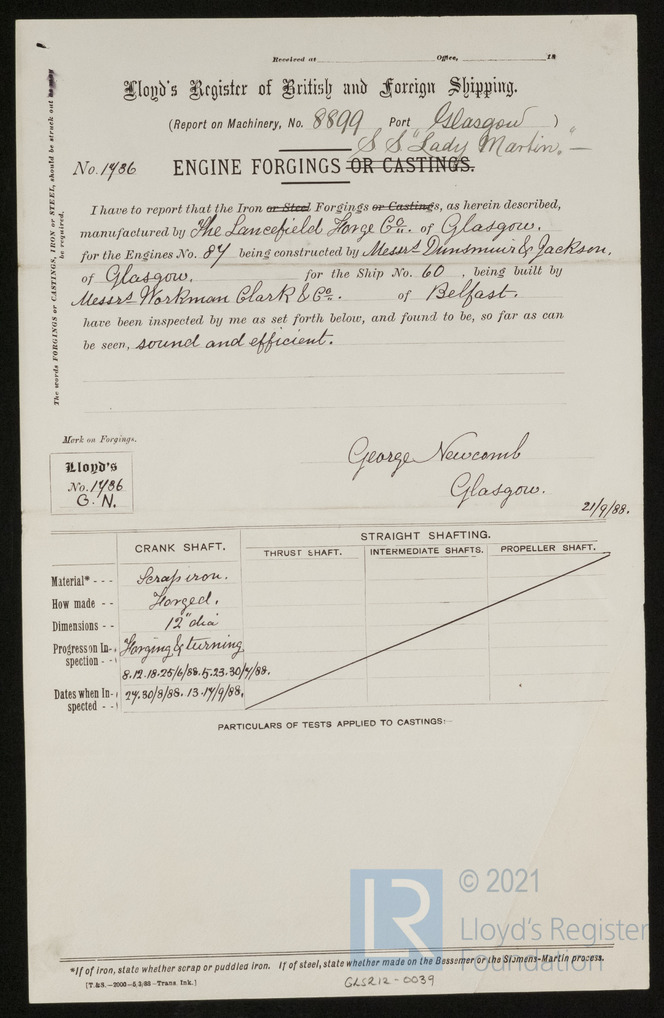 Received at Office, 18
Lloyd's Register of British and Foreign Shipping.
(Report on Machinery, No. 8899 Port Glasgow )
S S "Lady Martin." —
No. 1486 ENGINE FORGINGS OR CASTINGS.
The words FORGINGS or CASTINGS, IRON or STEEL, should be struck out as may be required.
I have to report that the Iron or Steel Forgings or Castings, as herein described,
manufactured by The Lancefield Forge Co. of Glasgow.
for the Engines No. 84 being constructed by Messrs Dunsmuir & Jackson.
of Glasgow. for the Ship No. 60, being built by
Messrs Workman Clark & Co. of Belfast.
have been inspected by me as set forth below, and found to be, so far as can
be seen, sound and efficient.
Mark on Forgings.
Lloyd's
No. 1486
G. N.
George Newcomb
Glasgow.
21/9/88.
CRANK SHAFT. STRAIGHT SHAFTING.
THRUST SHAFT. INTERMEDIATE SHAFTS. PROPELLER SHAFT.
Material* - - - Scrap iron.
How made - - Forged.
Dimensions - - 12" dia
Progress on In-
spection - - Forging & turning
8.12.18.25/6/88.5.23.30/7/88.
Dates when In-
spected - - 27.30/8/88. 13.17/9/88.
PARTICULARS OF TESTS APPLIED TO CASTINGS:—
LR
© 2021
Lloyd's Register
Foundation
*If of iron, state whether scrap or puddled iron. If of steel, state whether made on the Bessemer or the Siemens-Martin process.
[T.&S.—2000—5/3/88—Trans. Ink.]
GLS212-0039